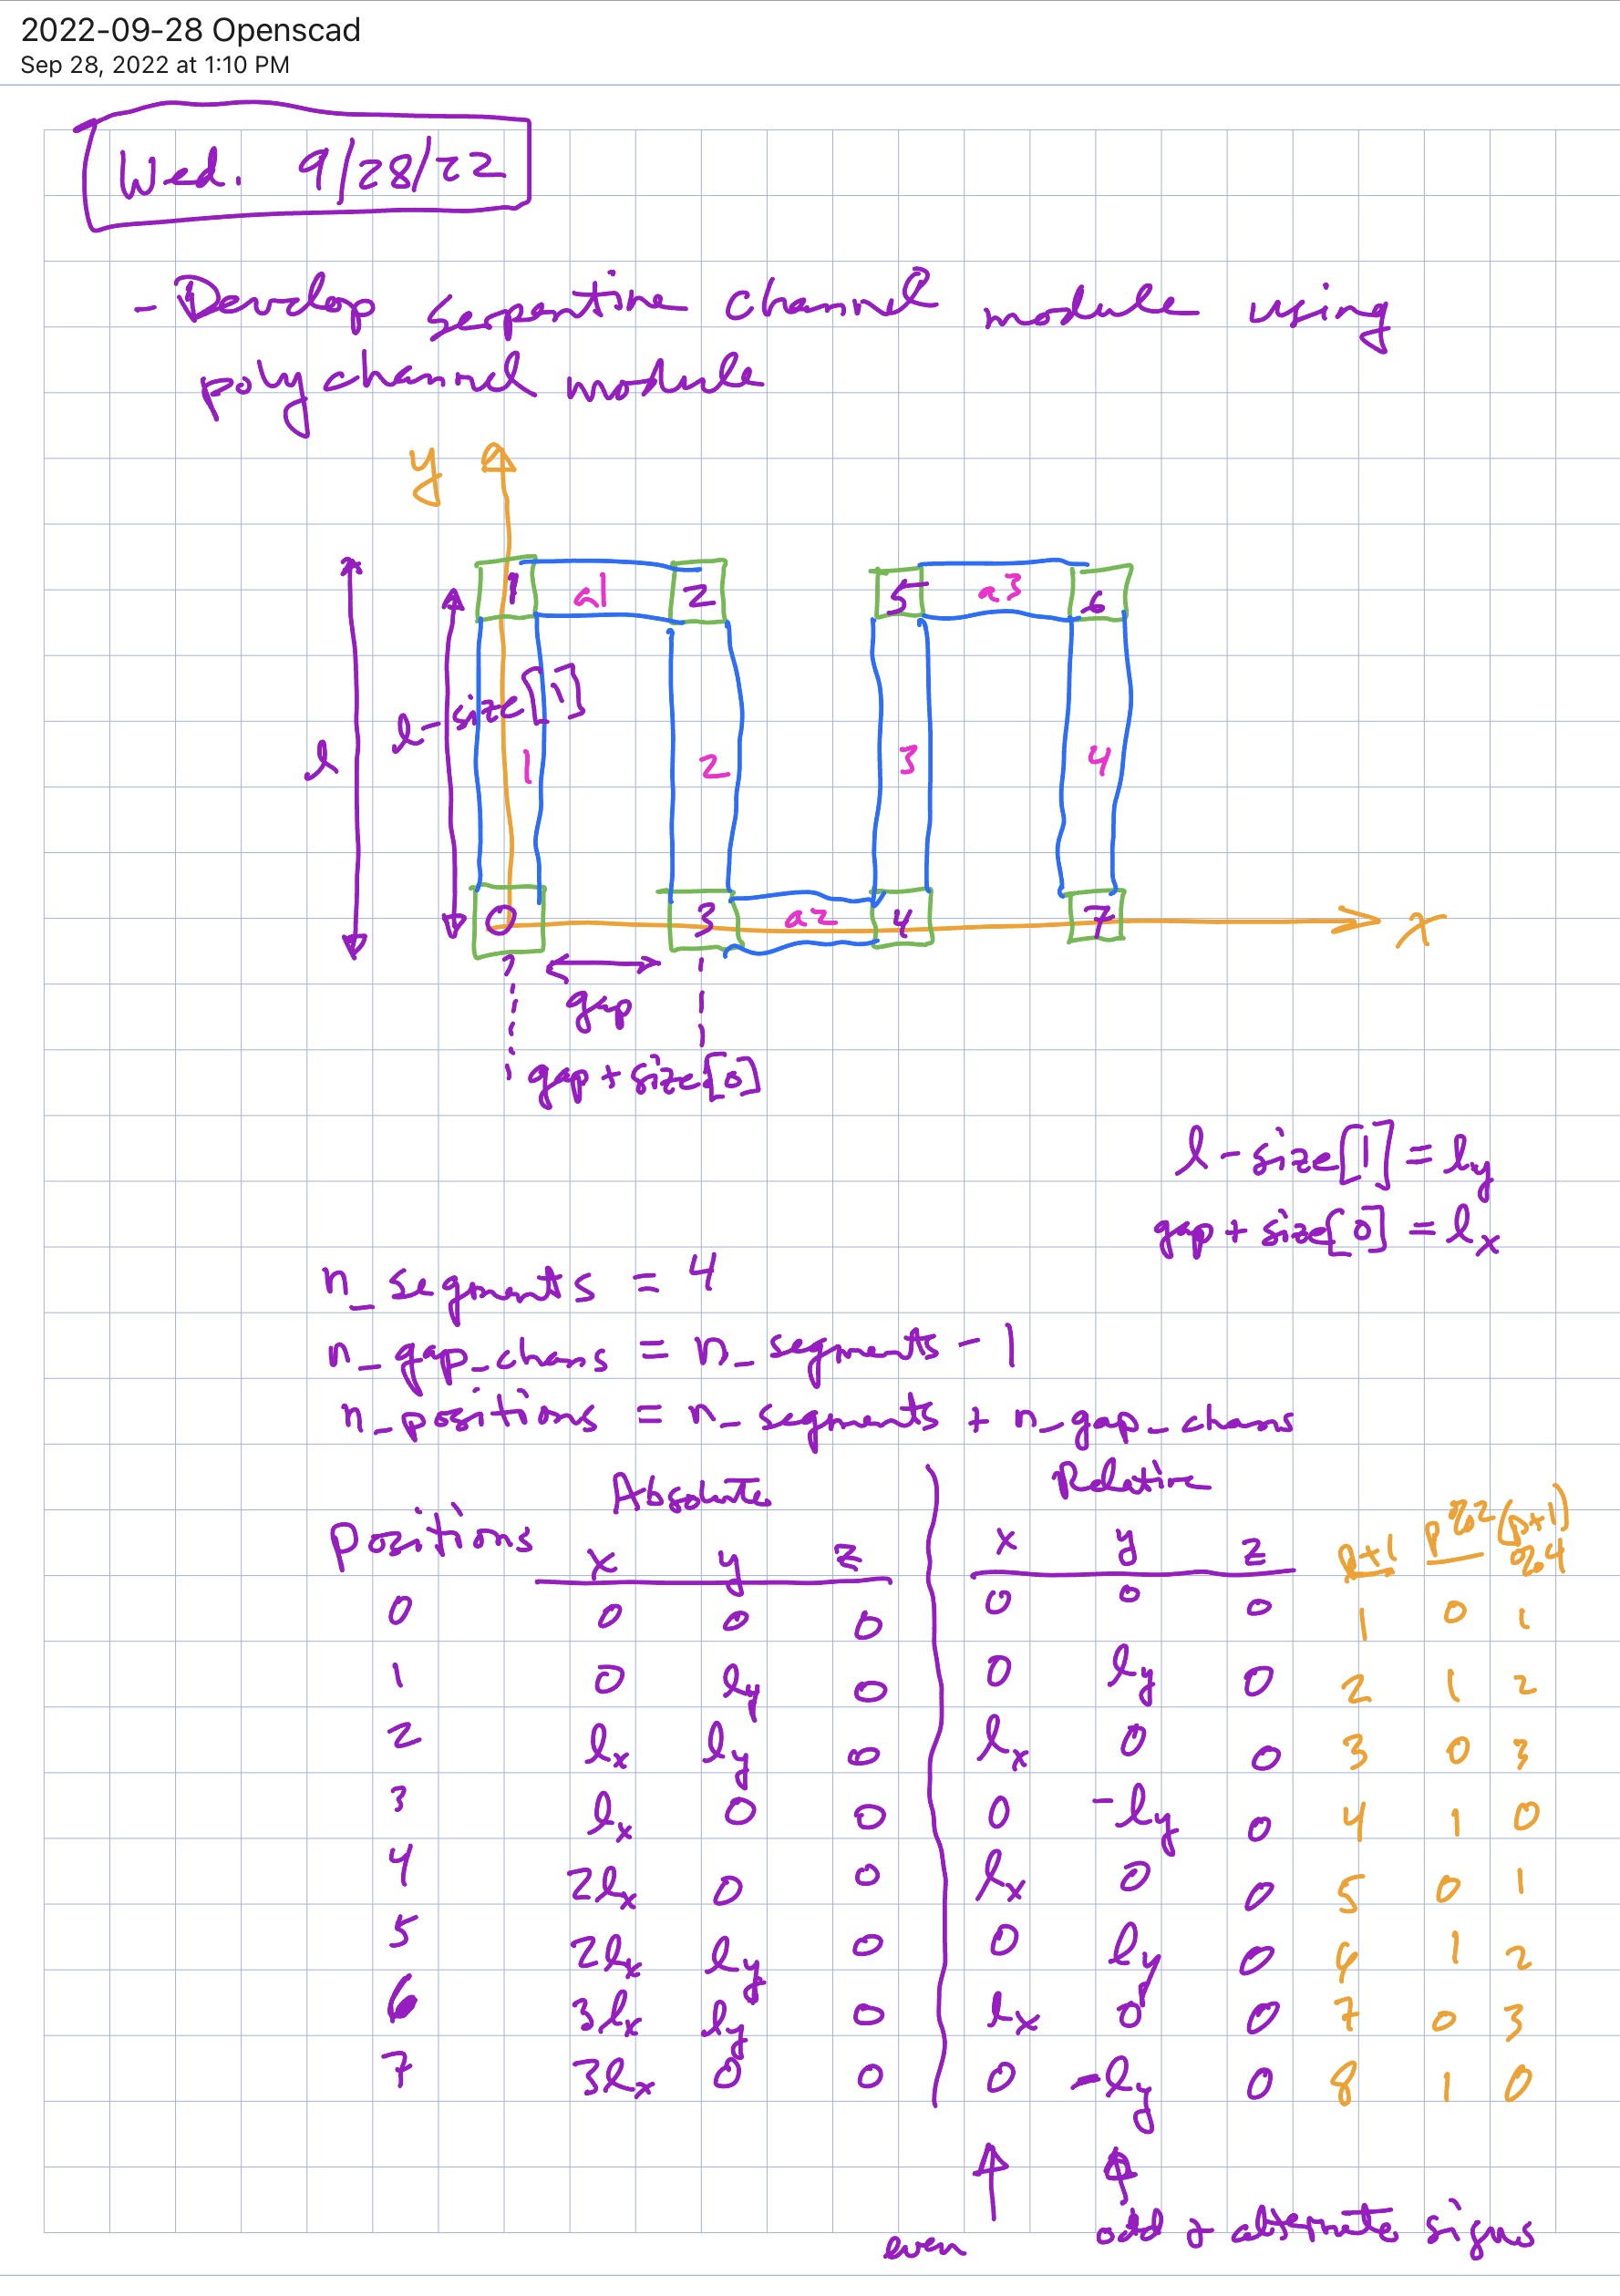 2022-09-28 Openscad
Sep 28, 2022 at 1:10 PM
Wed. 9/28/22
- Develop serpentine channel module using
polychannel module
y
1 a1 2 5 a3 6
l - size[1]
l 1 2 3 4
0 3 a2 4 7 x
gap
gap + size[0]
l - size[1] = ly
gap + size[0] = lx
n_segments = 4
n_gap_chans = n_segments - 1
n_positions = n_segments + n_gap_chans
Absolute Relative
Positions x y z x y z p+1 p%2 (p+1)%4
0 0 0 0 0 0 0 1 0 1
1 0 ly 0 0 ly 0 2 1 2
2 lx ly 0 lx 0 0 3 0 3
3 lx 0 0 0 -ly 0 4 1 0
4 2lx 0 0 lx 0 0 5 0 1
5 2lx ly 0 0 ly 0 6 1 2
6 3lx ly 0 lx 0 0 7 0 3
7 3lx 0 0 0 -ly 0 8 1 0
even odd + alternate signs